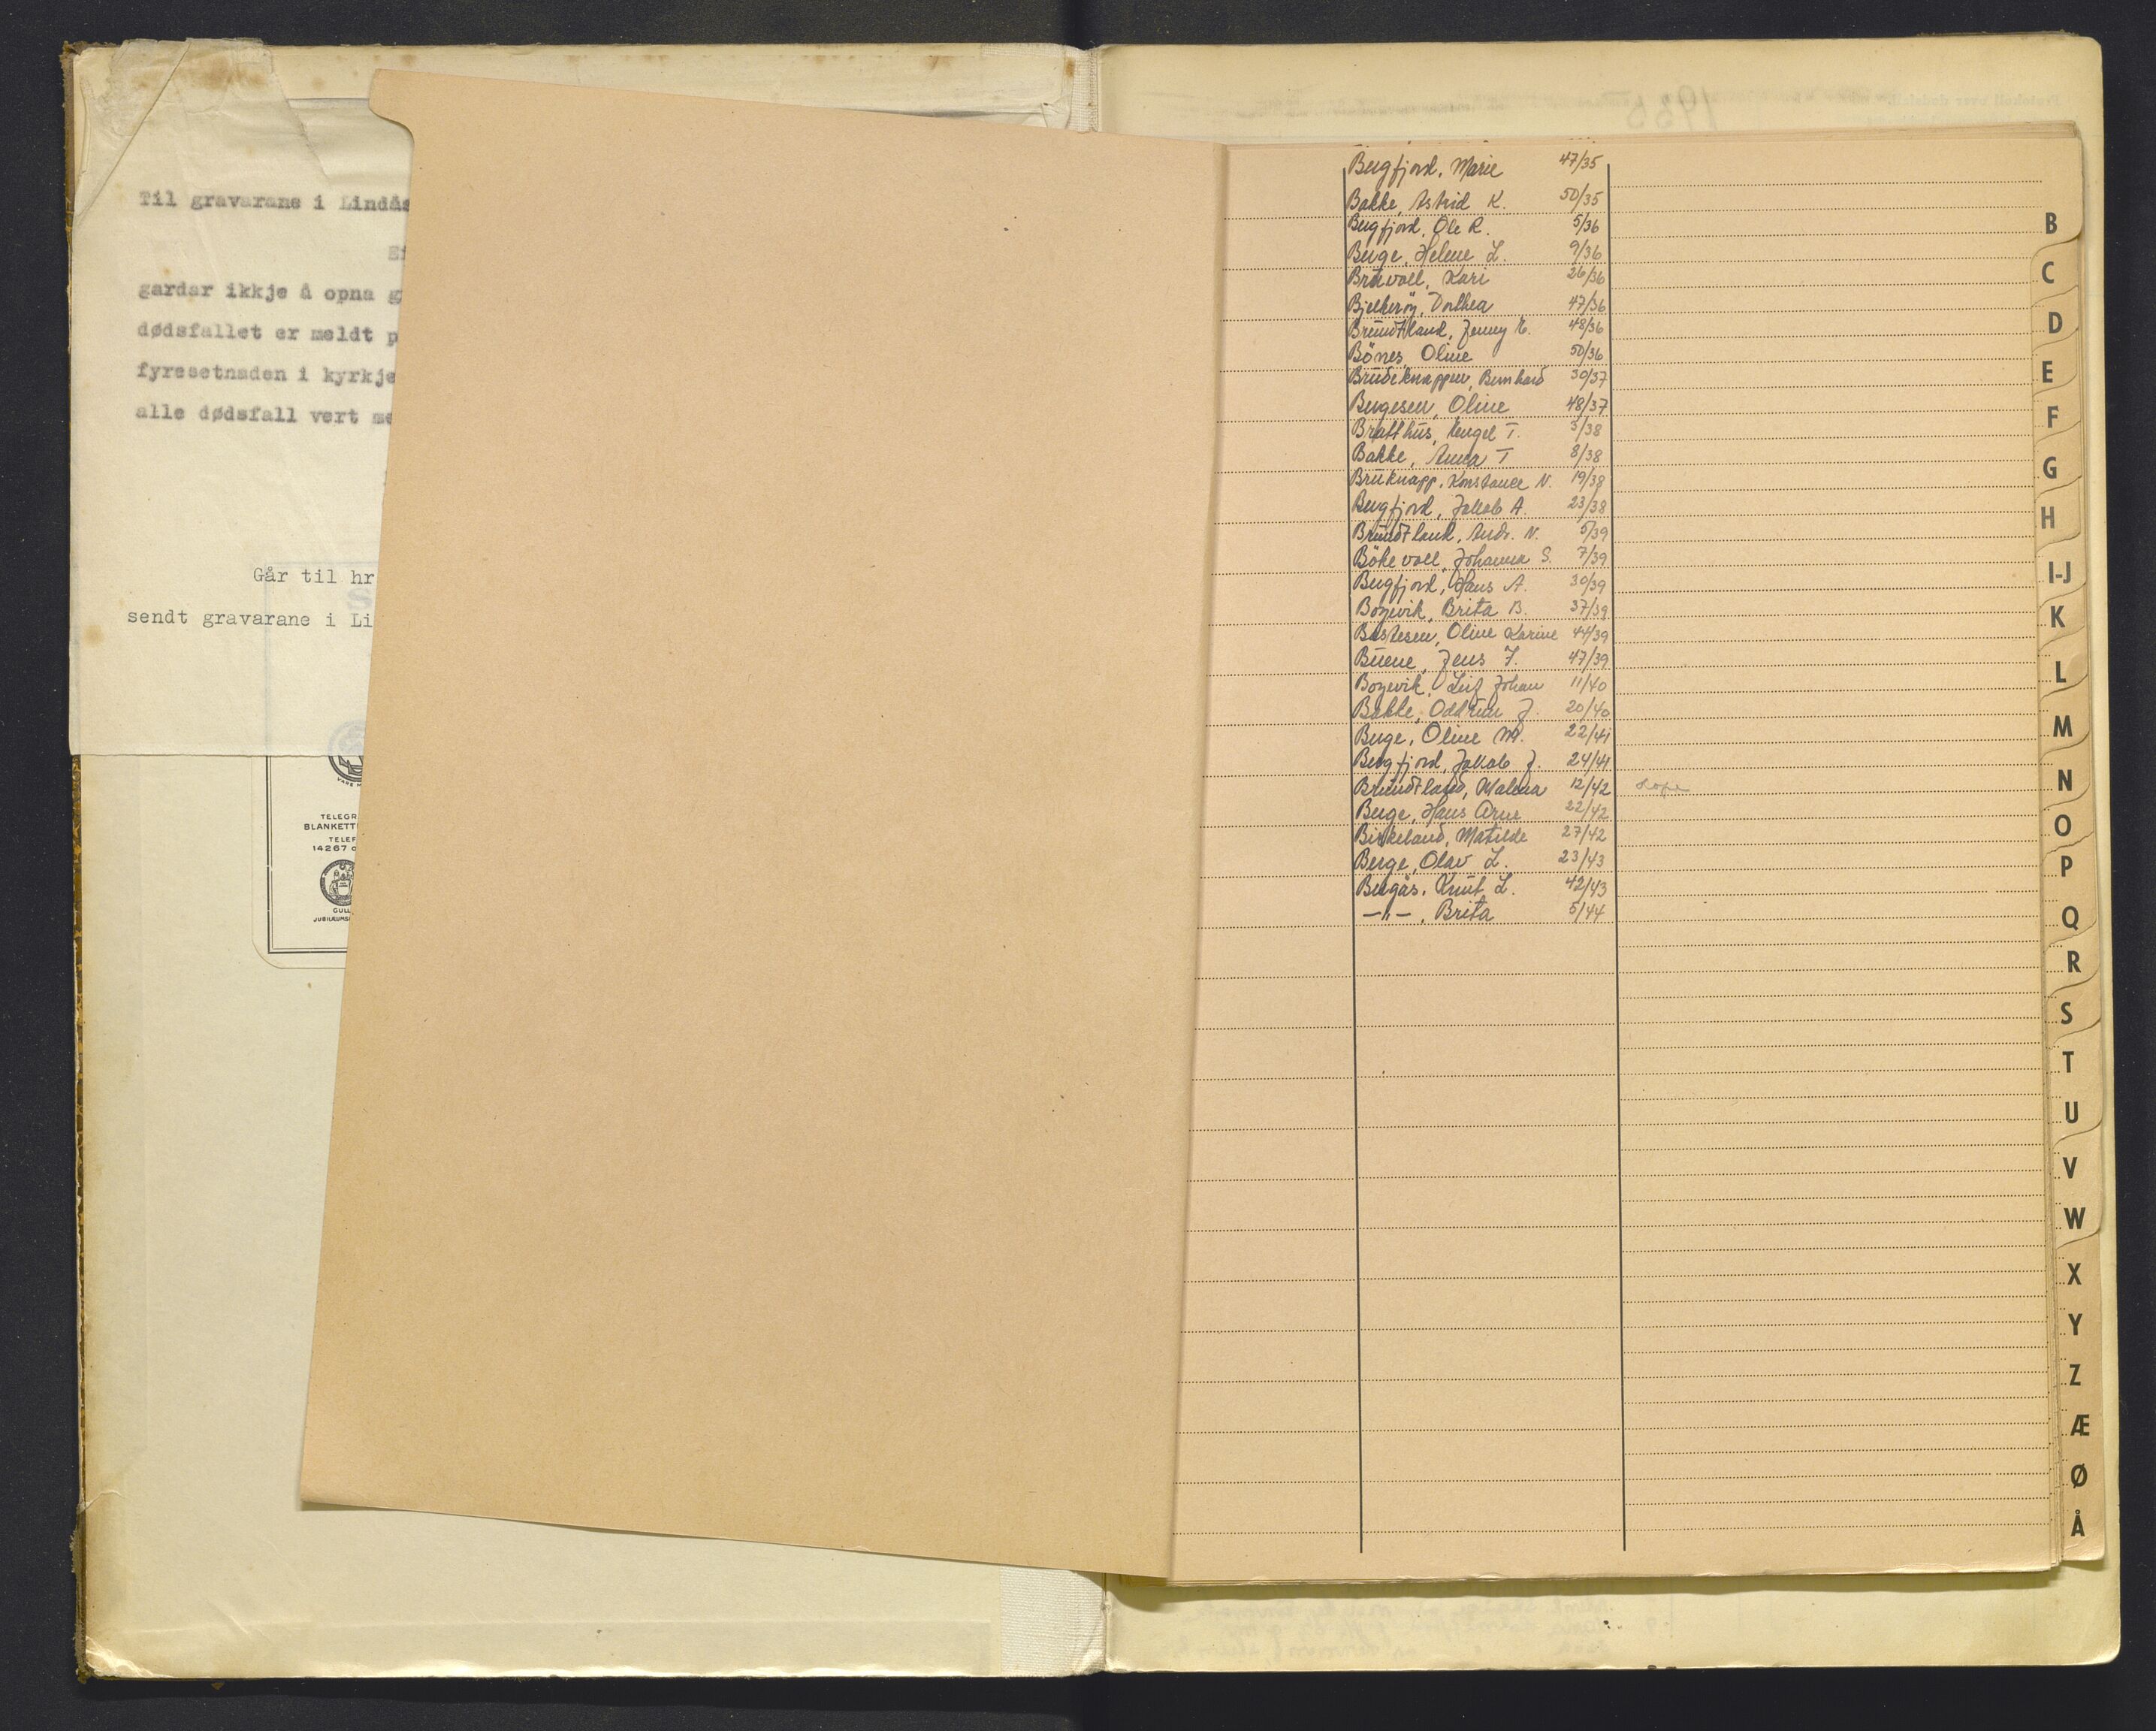 Til gravarane i Lindås
gardar ikkje å opna g
dødsfallet er meldt p
fyresetnaden i kyrkje
alle dødsfall vert me
Går til hr
sendt gravarane i Li
TELEGR
BLANKETT
TELEF
14267 o
GULL
JUBILÆUMS
1935
Bergfjord, Marie 47/35
Bakke, Astrid K. 50/35
Bergfjord, Ole R. 5/36
Berge, Helene L. 9/36
Bruvoll, Kari 26/36
Bjelkerøy, Dorthea 47/36
Brundtland, Jenny 48/36
Bönes, Oline 50/36
Brudeknappen, Bernhard 30/37
Bergesen, Oline 48/37
Bratthus, Rengel T. 3/38
Bakke, Anna T 8/38
Bruknapp, Konstance N. 19/38
Bergfjord, Jakob A. 23/38
Brundtland, Andr. N. 5/39
Bökevoll, Johanna S. 7/39
Bergfjord, Hans A. 30/39
Bozevik, Brita B. 37/39
Bastesen, Oline Karine 44/39
Buene, Jens J. 47/39
Bozevik, Leif Johan 11/40
Bakke, Oddrun J. 20/40
Berge, Oline M. 22/41
Bergfjord, Jakob J. 24/41
Brundtland, Malena 12/42
Berge, Hans Arne 22/42
Birkeland, Matilde 27/42
Berge, Olav L. 23/43
Bergås, Knut L. 42/43
—"—, Brita 5/44
B
C
D
E
F
G
H
I-J
K
L
M
N
O
P
Q
R
S
T
U
V
W
X
Y
Z
Æ
Ø
Å